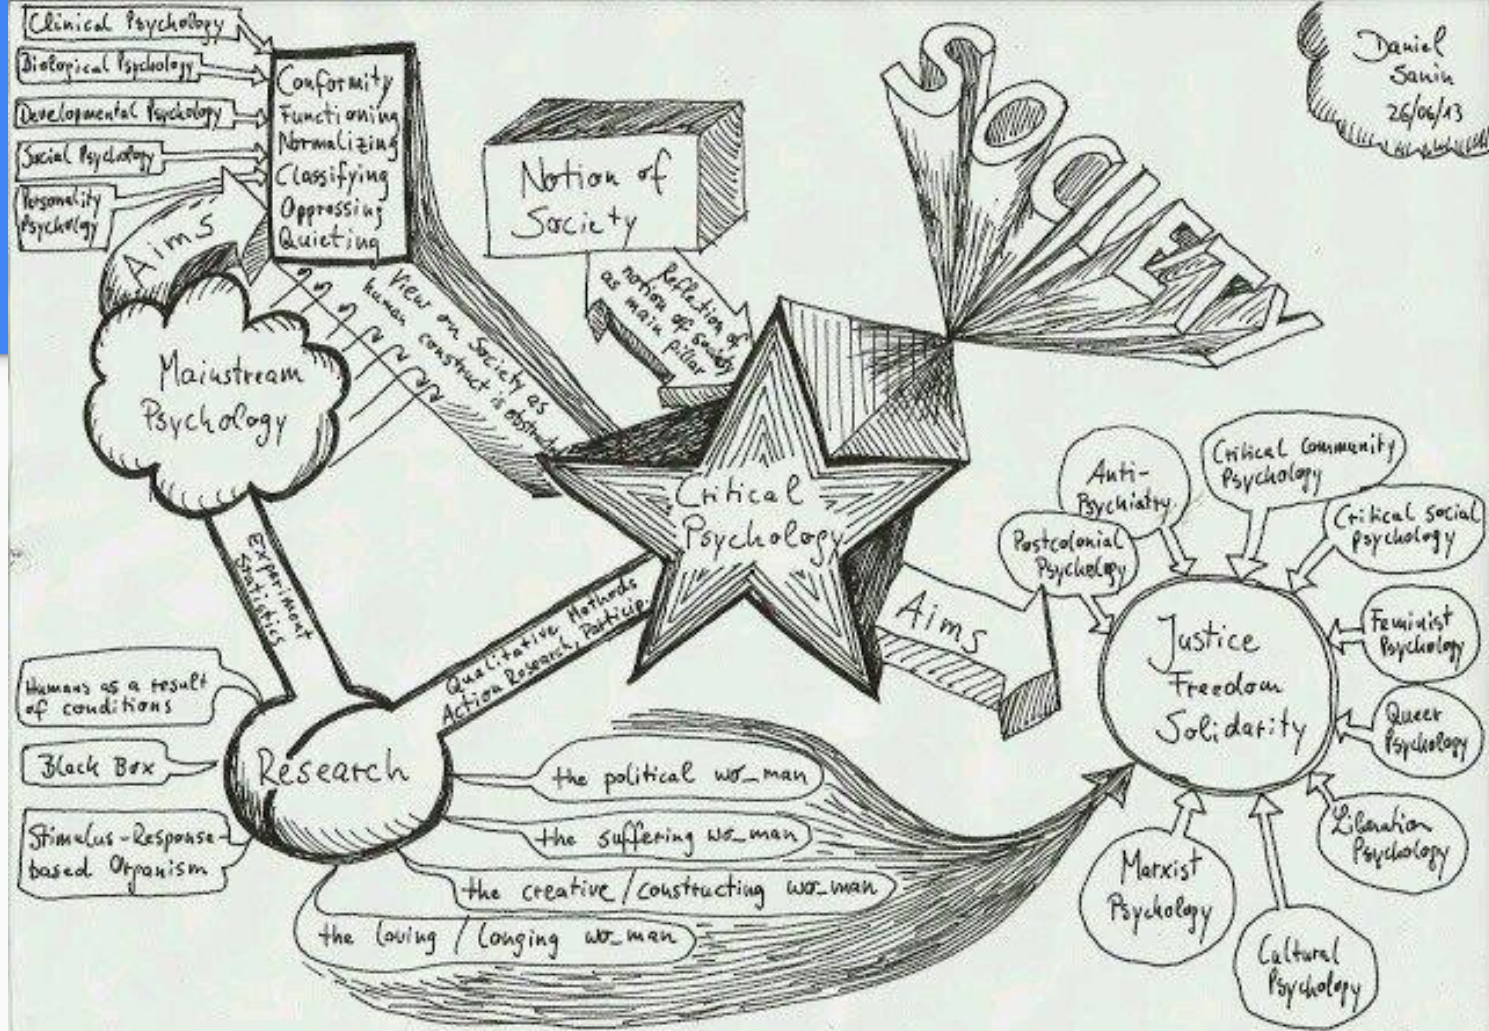 Clinical Psychology
Biological Psychology
Developmental Psychology
Social Psychology
Personality
Psychology
Conformity
Functioning
Normalizing
Classifying
Oppressing
Quieting
Aims
Mainstream
Psychology
View on Society as
human construct is obstructed
Notion of
Society
Reflection of
notion of society
as main
pillar
SOCIETY
Daniel
Sanin
26/06/13
Critical
Psychology
Experiment
Statistics
Qualitative Methods
Action Research, Particip.
Research
Humans as a result
of conditions
Black Box
Stimulus-Response-
based Organism
the political wo_man
the suffering wo_man
the creative / constructing wo_man
the loving / longing wo_man
Aims
Justice
Freedom
Solidarity
Postcolonial
Psychology
Anti-
Psychiatry
Critical Community
Psychology
Critical social
psychology
Feminist
Psychology
Queer
Psychology
Liberation
Psychology
Cultural
Psychology
Marxist
Psychology